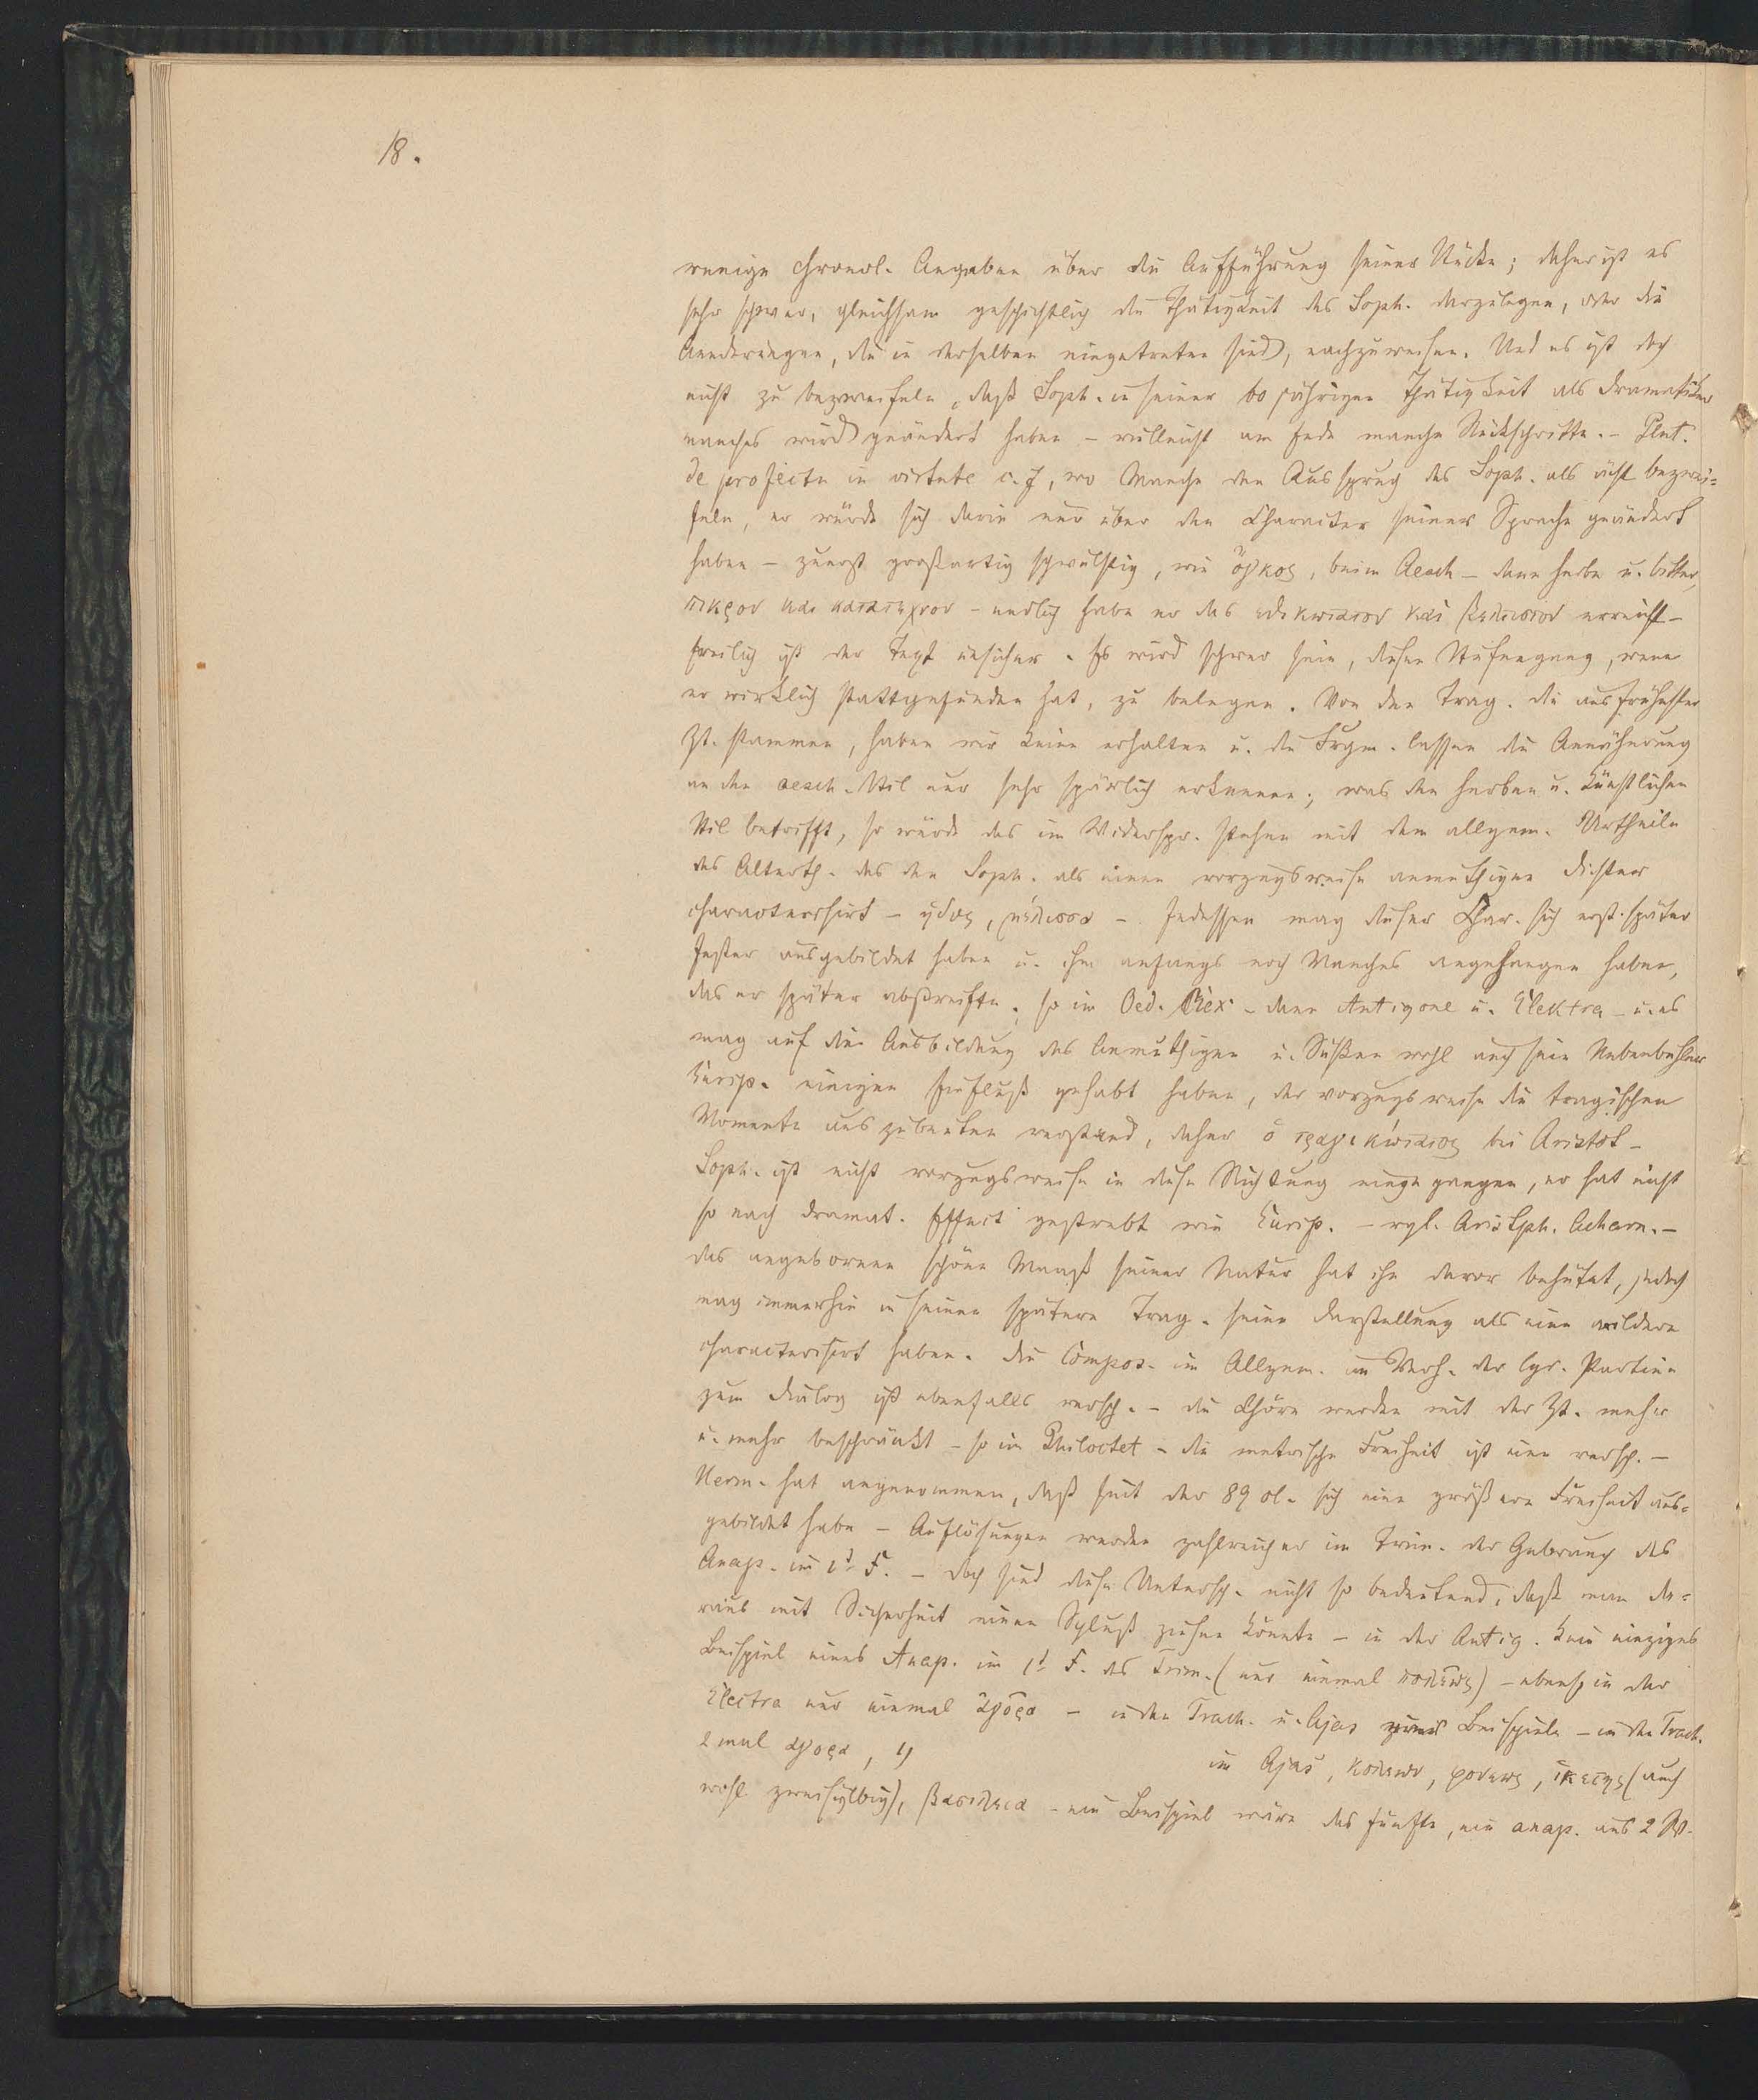 18.
wenige chronol. Angaben über die Aufführung seiner Stücke; daher ist es
sehr schwer, gleichsam geschichtlich die Thätigkeit des Soph. darzulegen, oder die
Aenderungen, die in derselben eingetreten sind, nachzuweisen. Und es ist doch
nicht zu bezweifeln, daß Soph. in seiner 60 jährigen Thätigkeit als Dramatiker
manches wird geändert haben – vielleicht am Ende manche Rückschritte. – Plut.
de profectu in virtute c. 7, wo Manche den Ausspruch des Soph. als ächt bezwei=
feln, er würde sich darin nur über den Character seiner Sprache geändert
haben – zuerst großartig schwülstig, wie ὄγκος, beim Aesch – dann herbe u. bitter,
πικρον και κατατεχνον – endlich habe er das ηθικωτατον καὶ βελτιστον erreicht –
freilich ist der Text unsicher. Es wird schwer sein, diesen Stufengang, wenn
er wirklich stattgefunden hat, zu belegen. Von den Trag. die aus frühester
Zt. stammen, haben wir keine erhalten u. die Frgm. lassen die Annäherung
an den aesch. Stil nur sehr spärlich erkennen; was den herben u. künstlichen
Stil betrifft, so würde das im Widerspr. stehen mit dem allgem. Urtheile
des Alterth. das den Soph. als einen vorzugsweise anmuthigen Dichter
characterisirt – ηδυς, μέλισσα –. Indessen mag dieser Char. sich erst später
fester ausgebildet haben u. ihm anfangs noch Manches angehangen haben,
das er später abstreifte, so im Oed. Rex – dann Antigone u. Elektra – u. es
mag auf die Ausbildung des Anmuthigen u. Süßen wohl auch sein Nebenbuhler
Eurip. einigen Einfluß gehabt haben, der vorzugsweise die tragischen
Momente auszubeuten verstand, daher ὁ τραγικώτατος bei Aristot –
Soph. ist nicht vorzugsweise in diese Richtung eingegangen, er hat nicht
so nach dramat. Effect gestrebt wie Eurip. – vgl. Aristph. Acharn. –
das angeborene schöne Maaß seiner Natur hat ihn davor behütet, jedoch
mag immerhin in seinen spätern Trag. seine Darstellung als eine mildere
characterisirt haben. Die Compos. im Allgem. im Verh. der lyr. Partien
zum Dialog ist ebenfalls versch. – die Chöre werden mit der Zt. mehr
u. mehr beschränkt – so im Philoctet – die metrische Freiheit ist eine versch. –
Herm. hat angenommen, daß seit der 89 Ol. sich eine größere Freiheit aus=
gebildet habe – Auflösungen werden zahlreicher im Trim. der Gebrauch des
Anap. im 1t F. – doch sind diese Untersch. nicht so bedeutend, daß man da=
raus mit Sicherheit einen Schluß ziehen könnte – in der Antig. kein einziges
Beispiel eines Anap. im 1t F. des Trim. (nur einmal πολεως) – ebenso in der
Electra nur einmal ἀγορα – in den Trach. u. Ajas Beispiele – in den Trach.
2 mal αγορα, im Ajas, φονεως, ικετης (auch
wohl zweisylbig), βασιλεια – ein Beispiel wäre das fünfte, ein anap. aus 2 W.